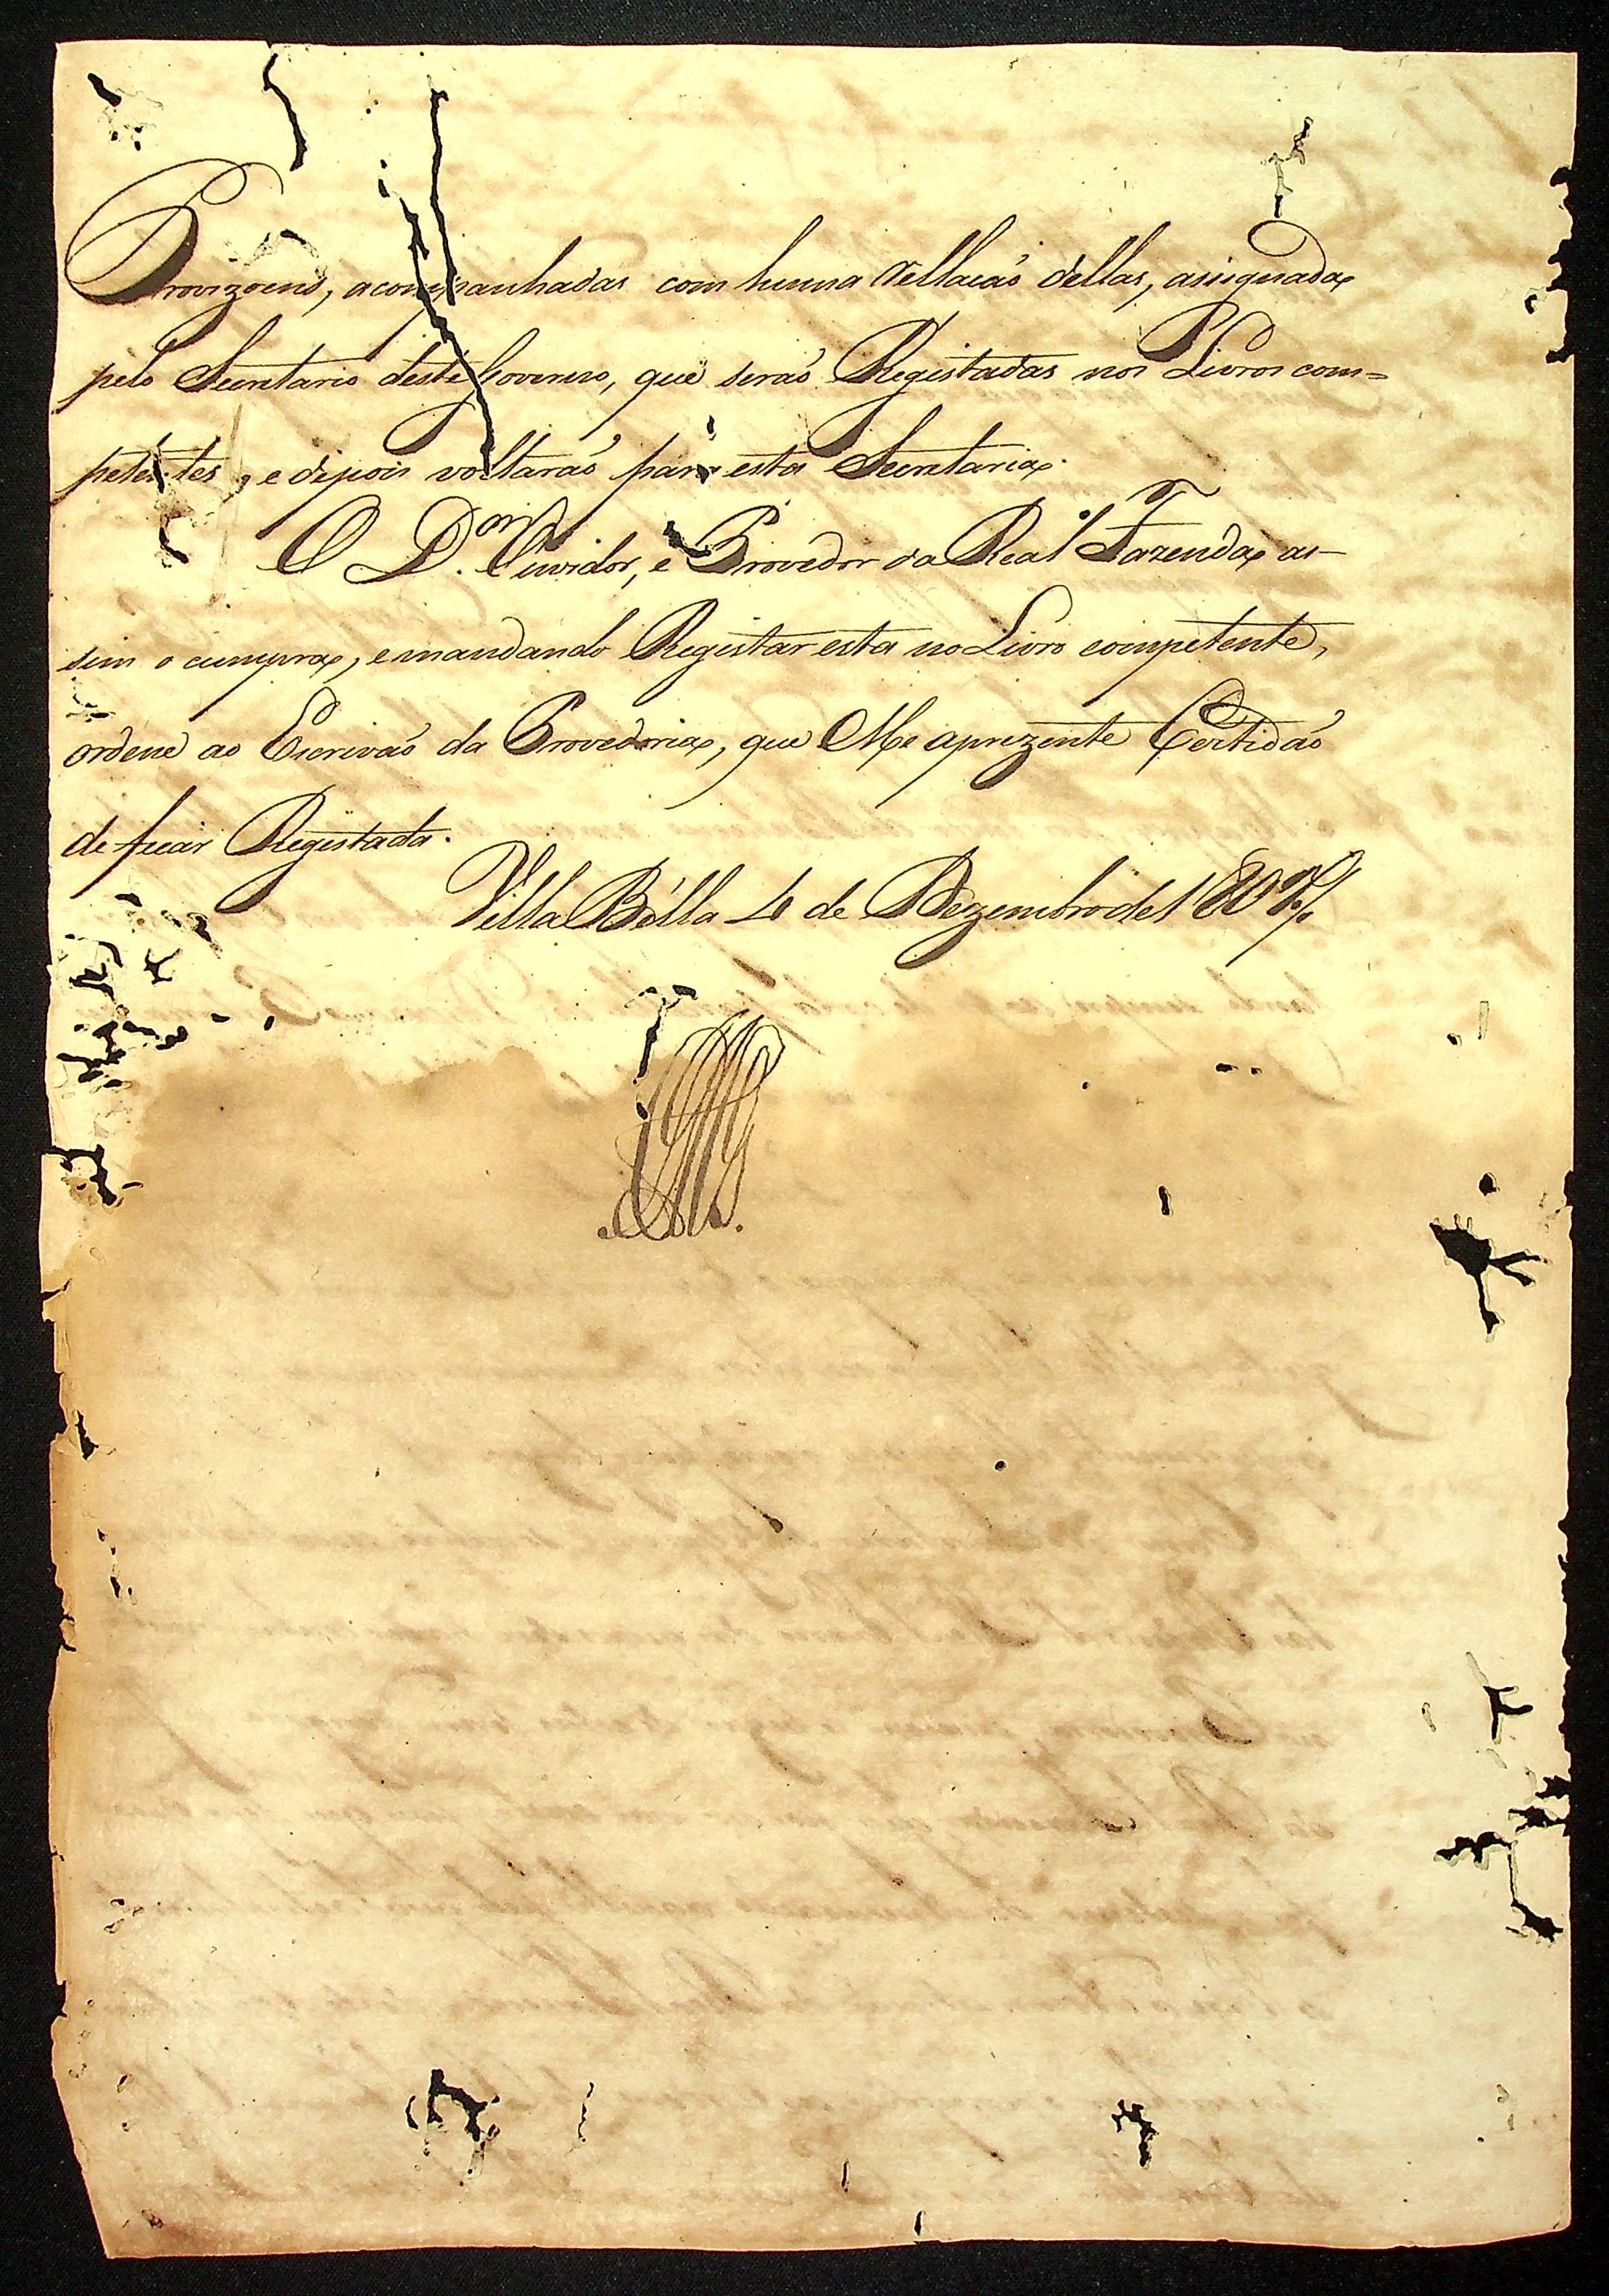 Provizoens, acompanhadas com huma Rellacaõ dellas, assignada
pelo Secretario deste Governo, que seraõ Registadas nos Livros com=
petentes, e depois voltaraõ para esta Secretaria.
O D.or Ouvidor, e Provedor da Real Fazenda as-
sim o cumpra, e mandando Registar esta no Livro competente,
ordene ao Escrivaõ da Provedoria, que Me aprezente Certidaõ
de ficar Registada.
Villa Bella 4 de Dezembro de